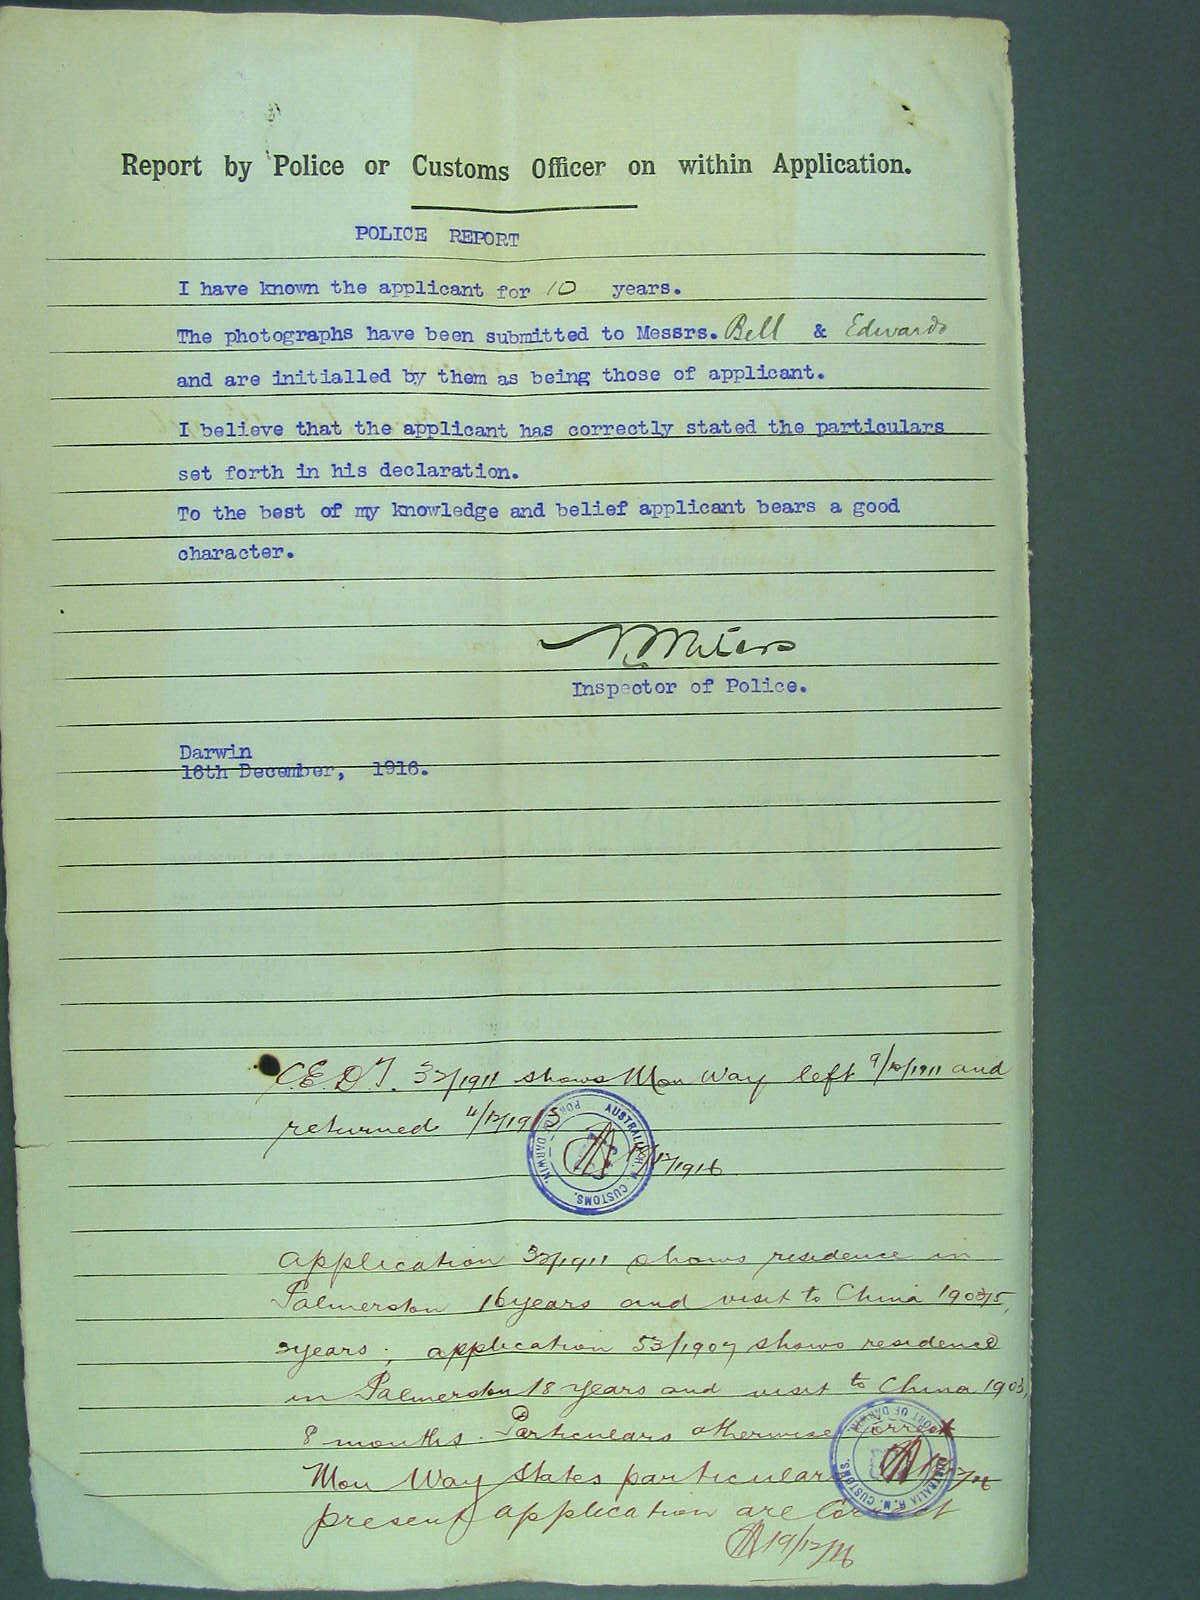 Report by Police or Customs Officer on within Application.
POLICE REPORT
I have known the applicant for 10 years.
The photographs have been submitted to Messrs. Bell & Edwards
and are initialled by them as being those of applicant.
I believe that the applicant has correctly stated the particulars
set forth in his declaration.
To the best of my knowledge and belief applicant bears a good
character.
Inspector of Police.
Darwin
16th December, 1916.
C.E.D.T. 32/1911 shows Mon Way left 9/10/1911 and
returned 4/12/1915
AUSTRALIA H. M. CUSTOMS. PORT OF DARWIN
/12/1916
application 32/1911 shows residence in
Palmerston 16 years and visit to China
years; application 53/1907 shows residence
in Palmerston 18 years and visit to China 1903,
8 months. Particulars otherwise correct
Mon Way states particulars
present application are Correct
AUSTRALIA H. M. CUSTOMS. PORT OF DARWIN
19/12/16